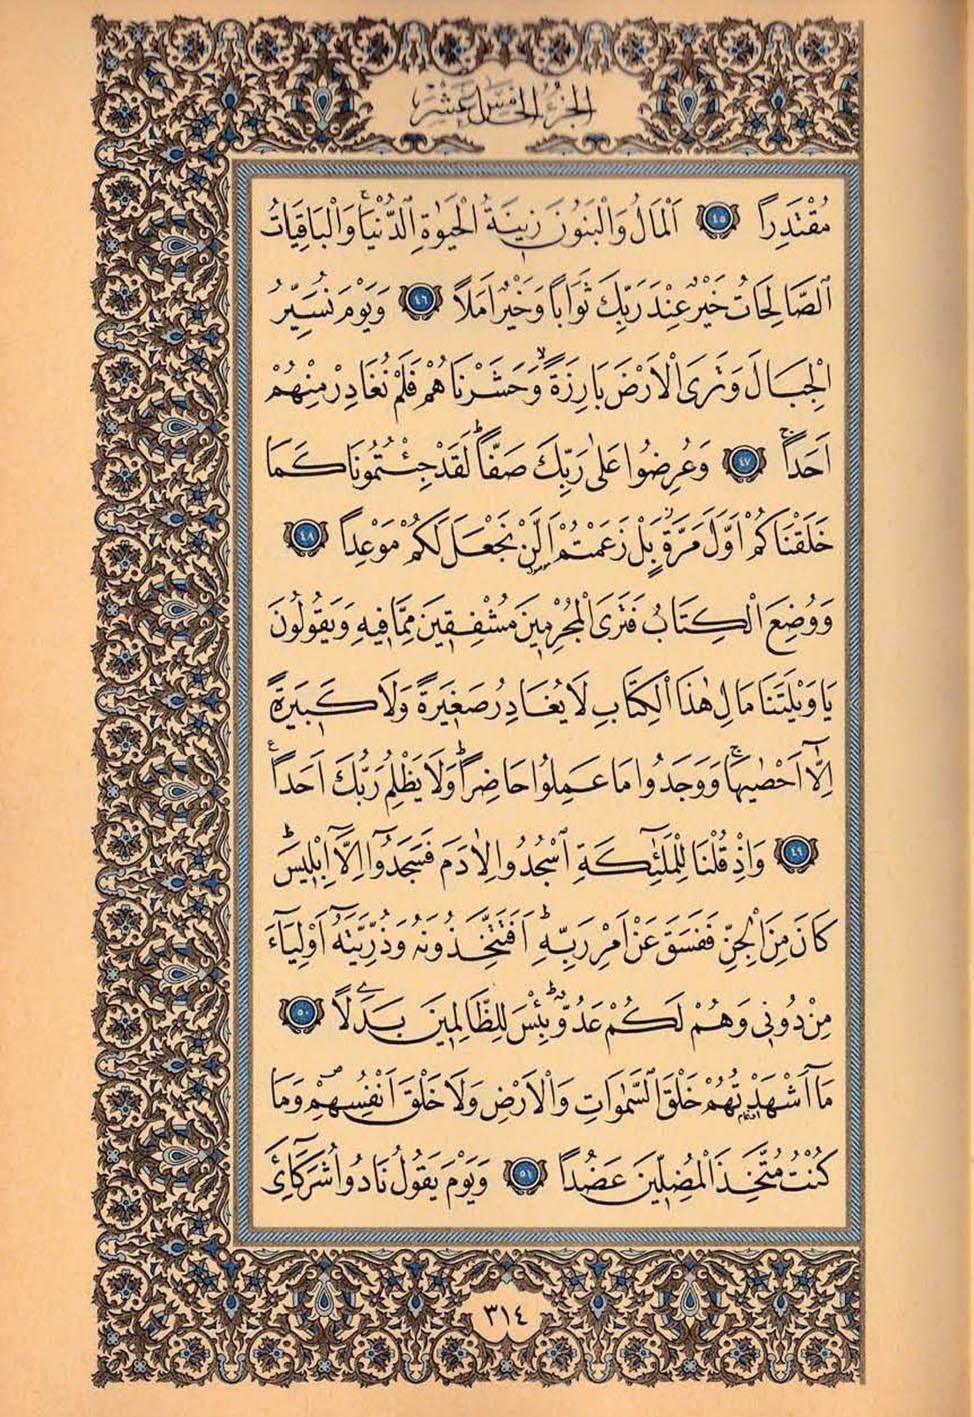 الجزء الخامس عشر
مُقْتَدِراً ٤٥ اَلْمَالُ وَالْبَنُونَ زِينَةُ الْحَيٰوةِ الدُّنْيَاۚ وَالْبَاقِيَاتُ
الصَّالِحَاتُ خَيْرٌ عِنْدَ رَبِّكَ ثَوَاباً وَخَيْرٌ اَمَلاً ٤٦ وَيَوْمَ نُسَيِّرُ
الْجِبَالَ وَتَرَى الْاَرْضَ بَارِزَةًۙ وَحَشَرْنَاهُمْ فَلَمْ نُغَادِرْ مِنْهُمْ
اَحَداًۚ ٤٧ وَعُرِضُوا عَلٰى رَبِّكَ صَفّاًۜ لَقَدْ جِئْتُمُونَا كَمَا
خَلَقْنَاكُمْ اَوَّلَ مَرَّةٍۘ بَلْ زَعَمْتُمْ اَلَّنْ نَجْعَلَ لَكُمْ مَوْعِداً ٤٨
وَوُضِعَ الْكِتَابُ فَتَرَى الْمُجْرِمِينَ مُشْفِقِينَ مِمَّا فِيهِ وَيَقُولُونَ
يَا وَيْلَتَنَا مَالِ هٰذَا الْكِتَابِ لَا يُغَادِرُ صَغِيرَةً وَلَا كَبِيرَةً
اِلَّٓا اَحْصٰيهَاۚ وَوَجَدُوا مَا عَمِلُوا حَاضِراًۜ وَلَا يَظْلِمُ رَبُّكَ اَحَداًۚ
٤٩ وَاِذْ قُلْنَا لِلْمَلٰٓئِكَةِ اسْجُدُوا لِاٰدَمَ فَسَجَدُٓوا اِلَّٓا اِبْلِيسَۜ
كَانَ مِنَ الْجِنِّ فَفَسَقَ عَنْ اَمْرِ رَبِّهِۜ اَفَتَتَّخِذُونَهُ وَذُرِّيَّتَهُٓ اَوْلِيَٓاءَ
مِنْ دُونِي وَهُمْ لَكُمْ عَدُوٌّۜ بِئْسَ لِلظَّالِمِينَ بَدَلاً ٥٠
مَٓا اَشْهَدْتُهُمْ خَلْقَ السَّمٰوَاتِ وَالْاَرْضِ وَلَا خَلْقَ اَنْفُسِهِمْ وَمَا
كُنْتُ مُتَّخِذَ الْمُضِلِّينَ عَضُداً ٥١ وَيَوْمَ يَقُولُ نَادُوا شُرَكَٓائِيَ
٣١٤